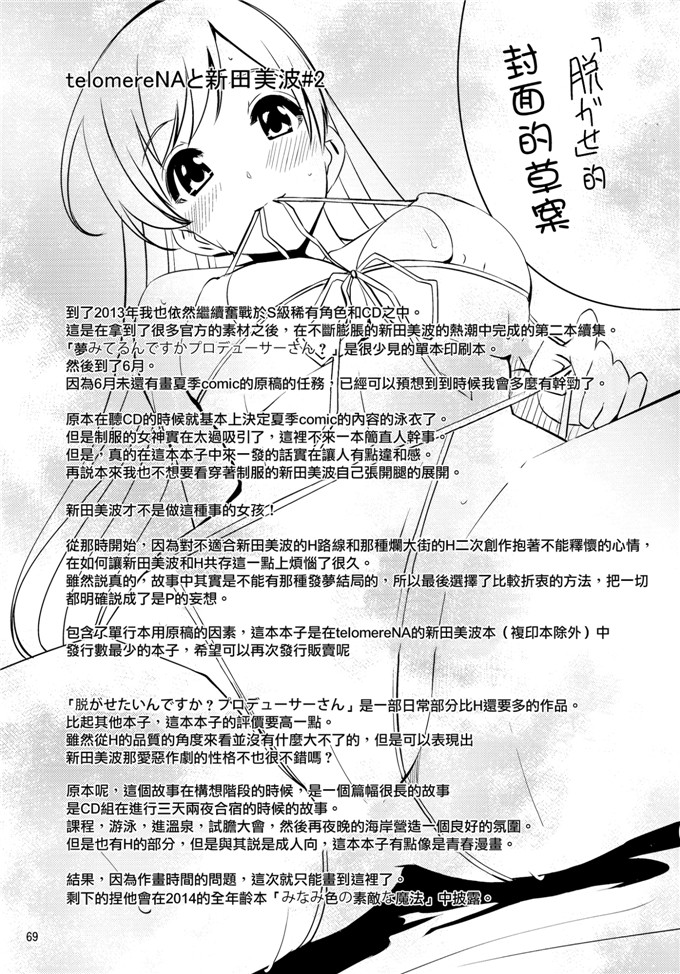 telomereNAと新田美波#2
「脱がせ」的
封面的草案
到了2013年我也依然繼續奮戰於S級稀有角色和CD之中。
這是在拿到了很多官方的素材之後，在不斷膨脹的新田美波的熱潮中完成的第二本續集。
「夢みてるんですかプロデューサーさん？」是很少見的單本印刷本。
然後到了6月。
因為6月末還有畫夏季comic的原稿的任務，已經可以預想到到時候我會多麼有幹勁了。
原本在聽CD的時候就基本上決定夏季comic的內容的泳衣了。
但是制服的女神實在太過吸引了，這裡不來一本簡直人幹事。
但是，真的在這本本子中來一發的話實在讓人有點違和感。
再說本來我也不想要看穿著制服的新田美波自己張開腿的展開。
新田美波才不是做這種事的女孩！
從那時開始，因為對不適合新田美波的H路線和那種爛大街的H二次創作抱著不能釋懷的心情，
在如何讓新田美波和H共存這一點上煩惱了很久。
雖然說真的，故事中其實是不能有那種發夢結局的，所以最後選擇了比較折衷的方法，把一切
都明確說成了是P的妄想。
包含了單行本用原稿的因素，這本本子是在telomereNA的新田美波本（複印本除外）中
發行數最少的本子，希望可以再次發行販賣呢
「脱がせたいんですか？プロデューサーさん」是一部日常部分比H還要多的作品。
比起其他本子，這本本子的評價要高一點。
雖然從H的品質的角度來看並沒有什麼大不了的，但是可以表現出
新田美波那愛惡作劇的性格不也很不錯嗎？
原本呢，這個故事在構想階段的時候，是一個篇幅很長的故事
是CD組在進行三天兩夜合宿的時候的故事。
課程，游泳，進溫泉，試膽大會，然後再夜晚的海岸營造一個良好的氛圍。
但是也有H的部分，但是與其說是成人向，這本本子有點像是青春漫畫。
結果，因為作畫時間的問題，這次就只能畫到這裡了。
剩下的捏他會在2014的全年齡本「みなみ色の素敵な魔法」中披露。
69